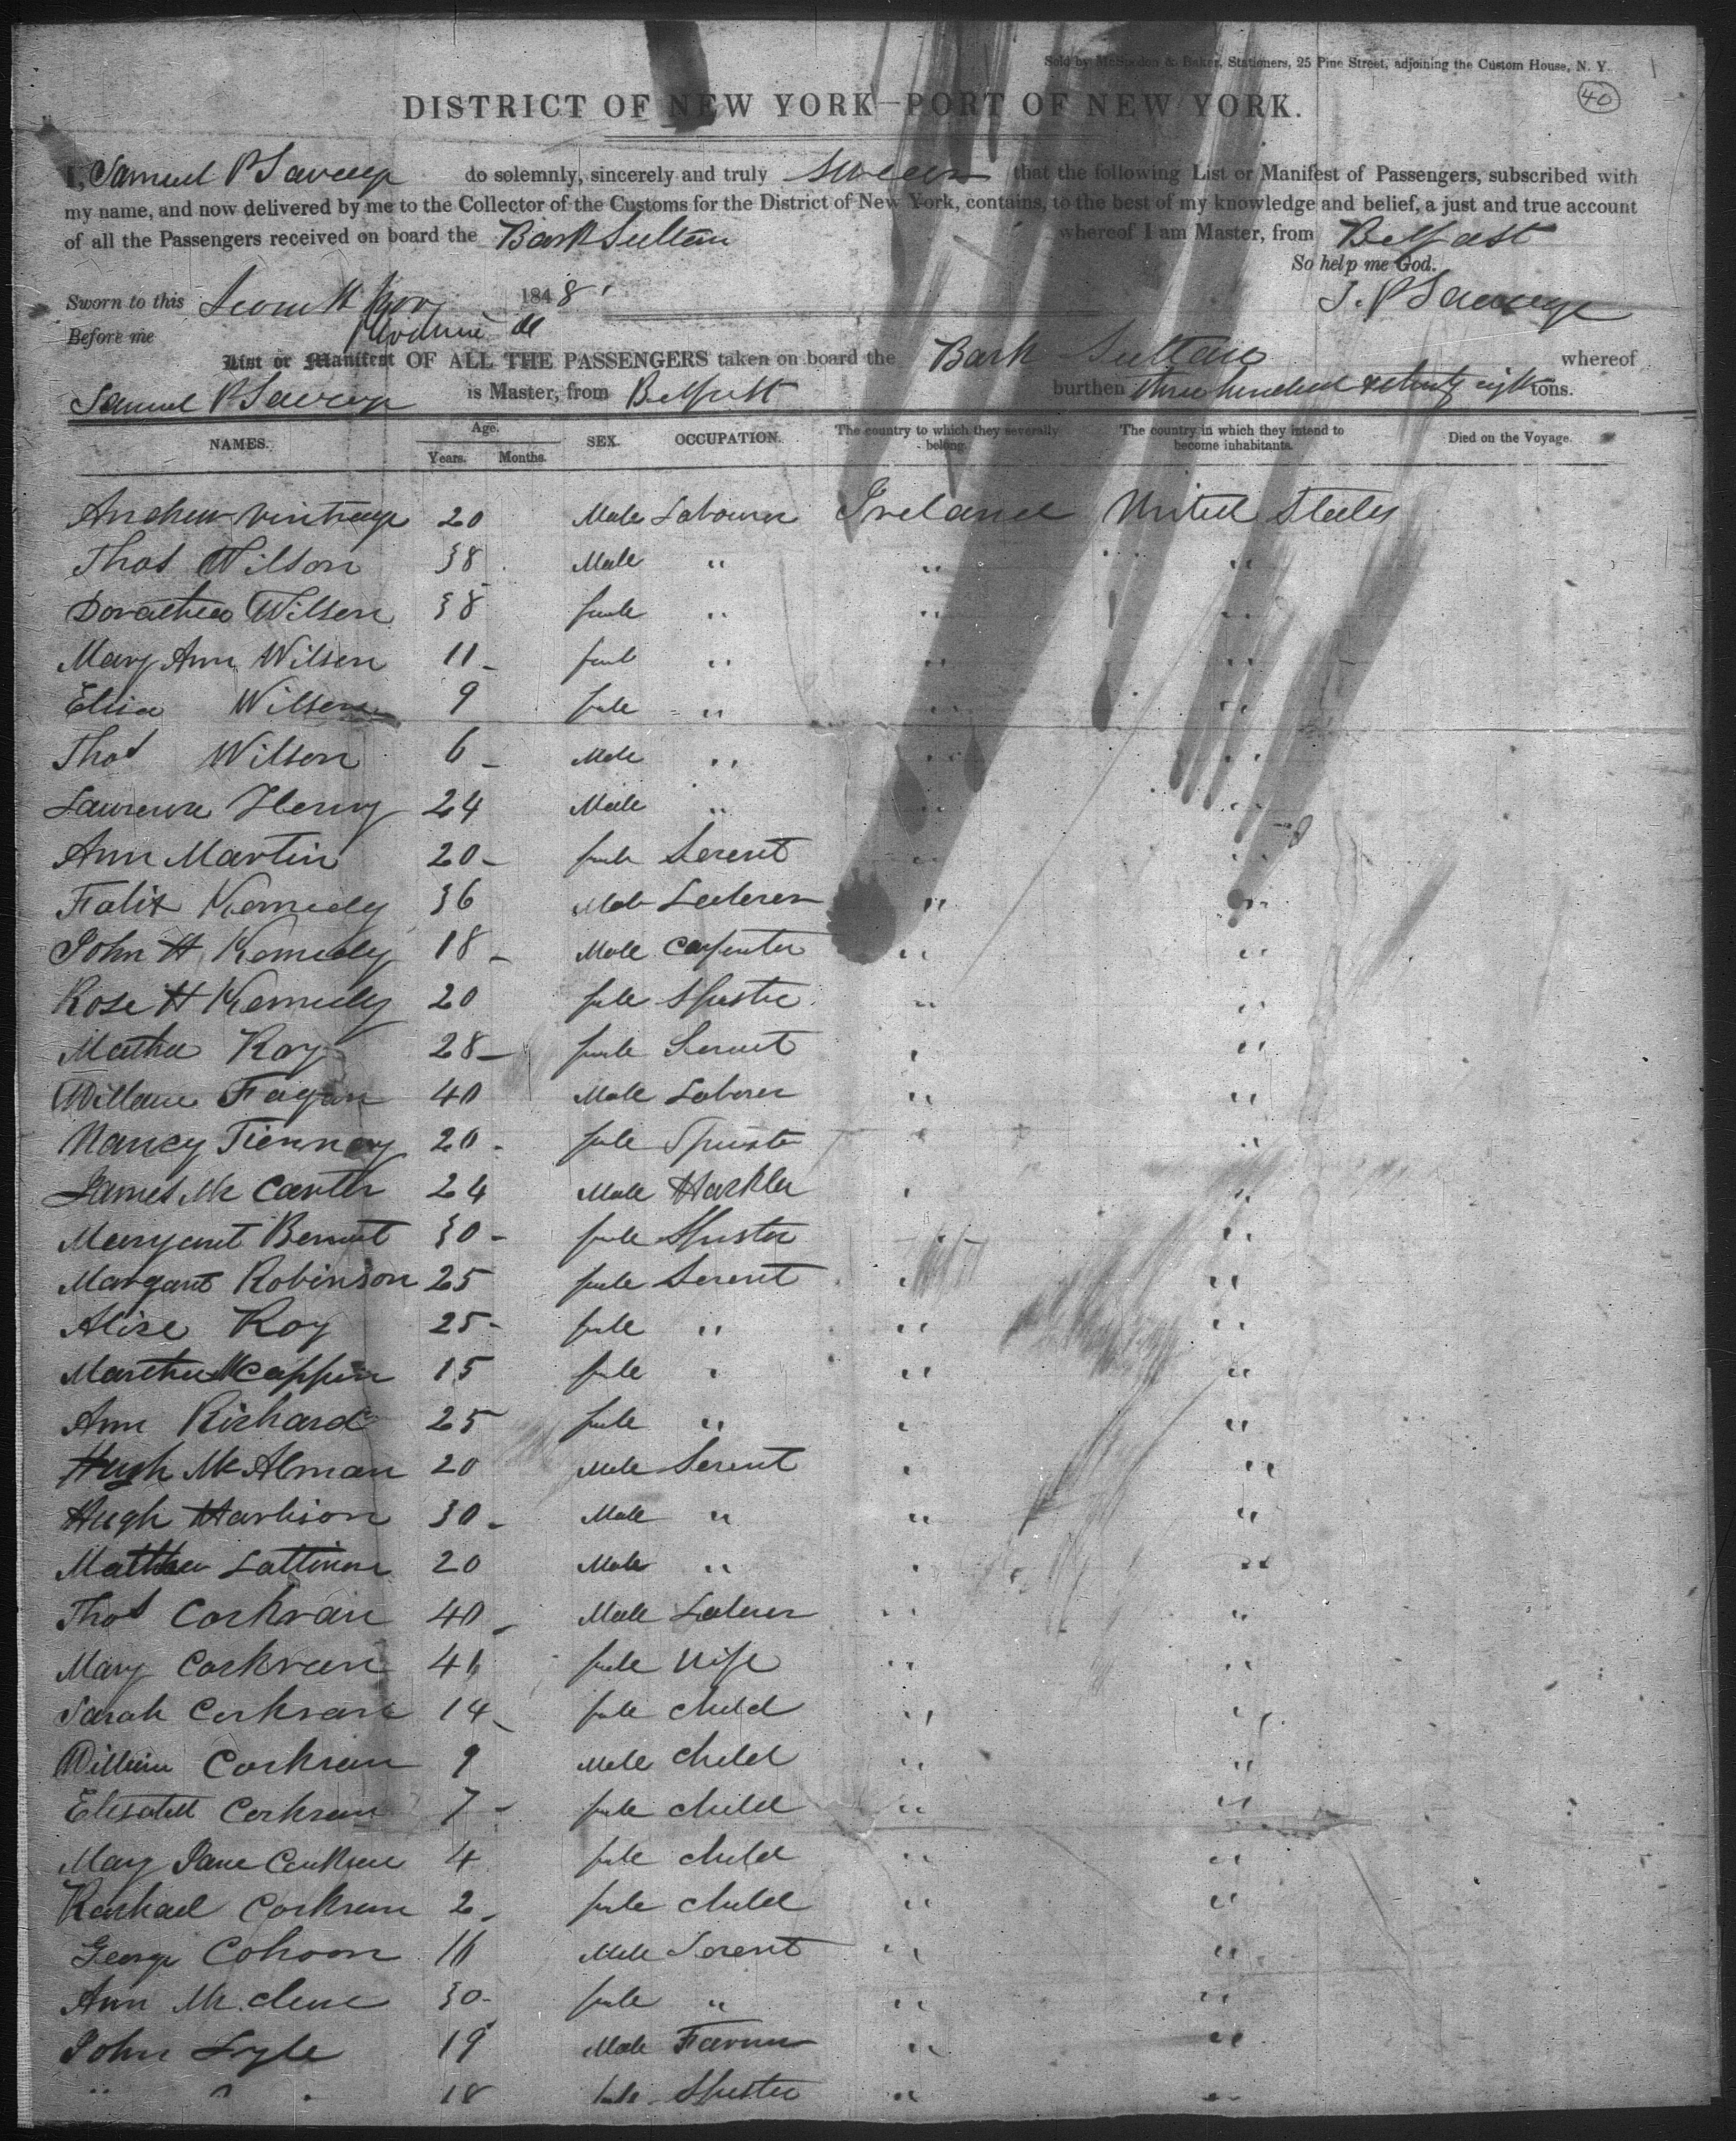 Sold by McSpedon & Baker, Stationers, 25 Pine Street, adjoining the Custom House, N. Y.
40
DISTRICT OF NEW YORK—PORT OF NEW YORK.
I, Samuel P do solemnly, sincerely and truly swear that the following List or Manifest of Passengers, subscribed with
my name, and now delivered by me to the Collector of the Customs for the District of New York, contains, to the best of my knowledge and belief, a just and true account
of all the Passengers received on board the Bark Sultan whereof I am Master, from Belfast
So help me God.
Sworn to this Nov 1848 S. P
Before me
List or Manifest OF ALL THE PASSENGERS taken on board the Bark Sultan whereof
Samuel P is Master, from Belfast burthen three hundred & eight tons.
NAMES. Age. Years. Months. SEX. OCCUPATION. The country to which they severally belong. The country in which they intend to become inhabitants. Died on the Voyage.
Andrew 20 Male Labourer Ireland United States
Thos Wilson 38 Male " " "
Dorathea Wilson 38 fmle " " "
Mary Ann Wilson 11 fmle " " "
Elisa Wilson 9 fmle " " "
Thos Wilson 6 Male " " "
Laurence Henry 24 Male " " "
Ann Martin 20 fmle Servent " "
Falix Kennedy 36 Male " "
John H Kennedy 18 Male Carpenter " "
Rose H Kennedy 20 fmle Spinster " "
Koy 28 fmle Servent " "
William Fagan 40 Male Laborer " "
Nancy Tiennay 20 fmle Spinster " "
James Mc Carter 24 Male Hackler " "
Margaret 30 fmle Spinster " "
Margaret Robinson 25 fmle Servent " "
Alice Koy 25 fmle " " "
Martha 15 fmle " " "
Ann Richard 25 fmle " " "
Hugh McAlman 20 Male Servent " "
Hugh Harbison 30 Male " " "
Matthew Lattimore 20 Male " " "
Thos Corkran 40 Male Laborer " "
Mary Corkran fmle Wife " "
Sarah Corkran 14 fmle child " "
William Corkran 9 Male child " "
Elizabeth Corkran 7 fmle child " "
Mary Jane Corkran 4 fmle child " "
Rachael Corkran 2 fmle child " "
George Cohoon 16 Male Servent " "
Ann 30 fmle " " "
John Lyle 19 Male Farmer " "
" " " 18 fmle Spinster " "